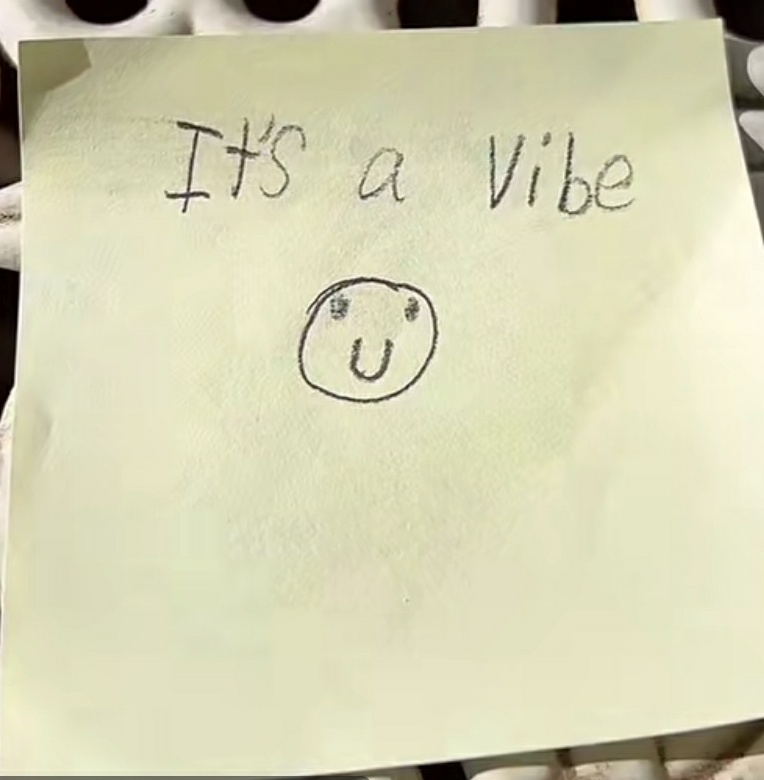 It's a Vibe